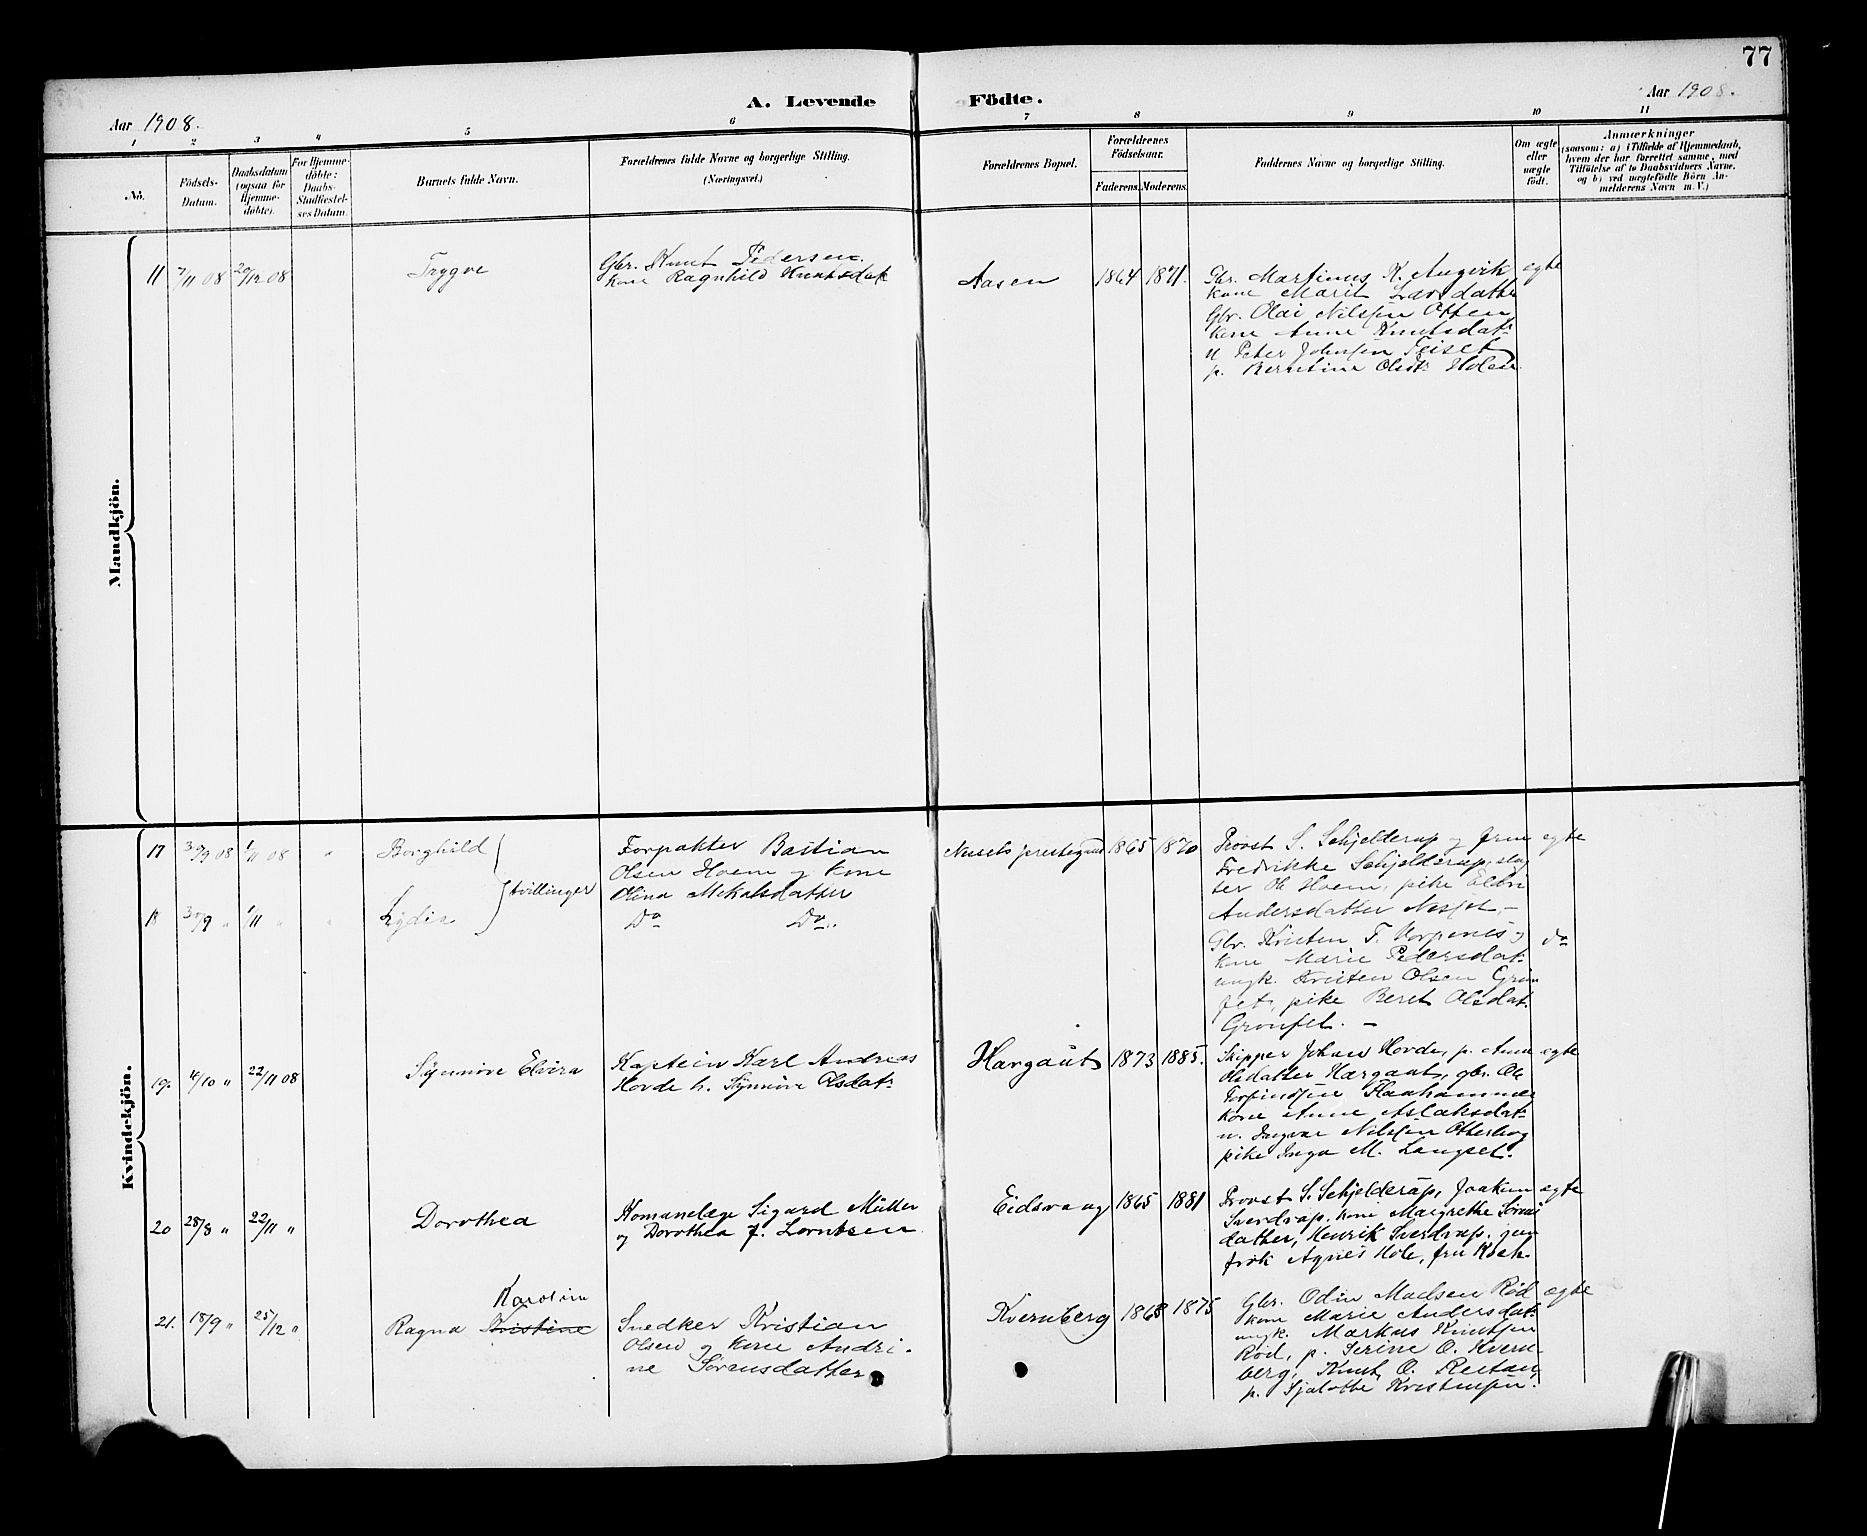 77
A. Levende Födte.
Aar 1908.
Aar 1908.
1 2 3 4 5 6 7 8 9 10 11
No.
Födsels-Datum.
Daabsdatum (ogsaa for Hjemmedöbte).
For Hjemmedöbte: Daabs-Stadfestelses Datum.
Barnets fulde Navn.
Forældrenes fulde Navne og borgerlige Stilling.
(Næringsvei.)
Forældrenes Bopæl.
Forældrenes Födselsaar.
Faderens. Moderens.
Faddernes Navne og borgerlige Stilling.
Om ægte eller uægte födt.
Anmærkninger
(saasom: a) i Tilfælde af Hjemmedaab,
hvem der har forrettet samme, med
Tilföielse af to Daabsvidners Navne,
og b) ved uægtefödte Börn Anmelderens Navn m. V.)
Mandkjön.
11 7/11 08 20/12 08 Trygve
Gbr. Knut Pedersen.
kone Ragnhild Knutsdat
Aasen 1864 1871.
Gbr. Martinus K. Angvik
kone Marit Larsdatter
Gbr. Olai Nilssen Otten
kone Anne Knutsdatr
u Peter Johnsen Teiset
p. Berntine Olsdtr Holen
egte
Kvindekjön.
17 30/9 08 1/11 08 " Borghild
tvillinger
Forpakter Bastian
Olsen Hoem og kone
Olina Mikalsdatter
Nessets prestegaard 1865 1870
Provst S. Schjelderup og frue
Fredrikke Schjelderup,
Ole Hoem, pike Eldri
Andersdatter Nesset, –
egte
18 30/9 " 1/11 " " Lydia
Do Do
Gbr. Kristen T. Vorpenes og
kone Marie Pedersdat.
ungk. Kristen Olsen
pike Beret Olsdat.
Gronset. –
do
19. 4/10 " 22/11 08 Synnøve Elvira
Kaptein Karl Andreas
Hovde h. Synnøve Olsdatr
Hargaut 1873 1885.
Skipper Johan Hovde, p. Anna
Olsdatter Hargaut, gbr. Ole
Torfindsen Flaahammer
kone Anne Aslaksdatr
u. Ingvar Nilssen Otterbog
pike Inga M. Langset.
egte
20 28/8 " 22/11 " Dorothea
Sigurd Müller
og Dorothea f. Lorntsen
Eidsvaag 1865 1881
Provst S. Schjelderup, Joakim
Sverdrup. kone Margrethe
datter, Henrik Sverdrup,
frøk Agnes Hole, fru Koch.
egte
21. 18/9 " 25/12 " Ragna Kristine Karoline
Snedker Kristian
Olsen og kone Andri-
ne Sørensdatter
Kvernberg 1868 1875
Gbr. Odin Madsen Rød
kone Marie Andersdat.
ungk. Markus Knutsen
Rød, p. Serine O. Kvern-
berg, Knut O. Reitan,
p. Sjalotte Kristensen.
egte